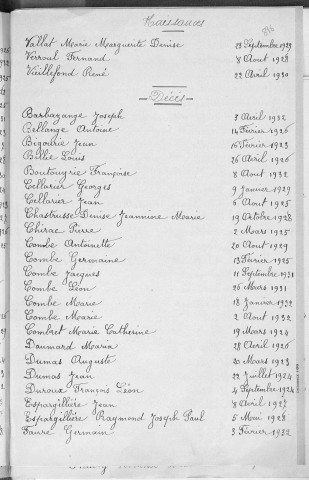 Naissances
Vallat Marie Marguerite Denise 29 Septembre 1929
Verroul Fernand 8 Aout 1928
Vieillefond René 22 Avril 1930
Décès
Barbazange Joseph 3 Avril 1932
Bellange Antoine 14 Février 1926
Bigourie Jean 16 Février 1923
Billie Louis 26 Avril 1926
Boutouyres Françoise 8 Aout 1932
Cellarier Georges 9 Janvier 1929
Cellarier Jean 6 Aout 1925
Chastrusse Denise Jeannine Marie 19 Octobre 1928
Chirac Pierre 2 Mars 1925
Combe Antoinette 20 Aout 1929
Combe Germaine 13 Février 1925
Combe Jacques 11 Septembre 1931
Combe Léon 26 Mars 1931
Combe Marie 18 Janvier 1932
Combe Marie 2 Aout 1932
Combret Marie Catherine 19 Mars 1924
Daumard Maria 28 Avril 1926
Dumas Auguste 20 Mars 1923
Dumas Jean 22 Juillet 1924
Duroux François Léon 4 Septembre 1924
Espargillière Jean 8 Avril 1927
Espargillière Raymond Joseph Paul 5 Mai 1928
Faure Germain 3 Février 1932